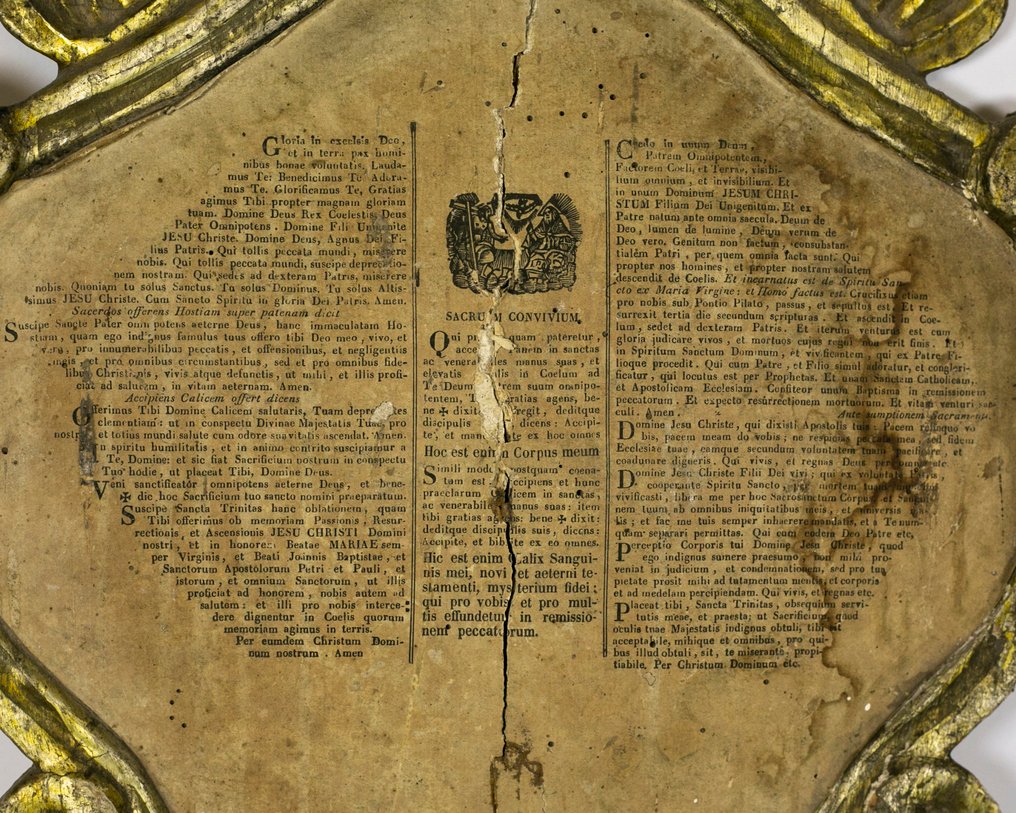 Gloria in excelsis Deo,
et in terra pax homi-
nibus bonae voluntatis. Lauda-
mus Te: Benedicimus Te Adora-
mus Te. Glorificamus Te, Gratias
agimus Tibi propter magnam gloriam
tuam. Domine Deus Rex Coelestis, Deus
Pater Omnipotens. Domine Fili Unigenite
JESU Christe. Domine Deus, Agnus Dei Fi-
lius Patris. Qui tollis peccata mundi, miserere
nobis. Qui tollis peccata mundi, suscipe deprecatio-
nem nostram. Qui sedes ad dexteram Patris, miserere
nobis. Quoniam tu solus Sanctus. Tu solus Dominus. Tu solus Altis-
simus JESU Christe. Cum Sancto Spiritu in gloria Dei Patris. Amen.
Sacerdos offerens Hostiam super patenam dicit
Suscipe Sancte Pater omnipotens aeterne Deus, hanc immaculatam Ho-
stiam, quam ego indignus famulus tuus offero tibi Deo meo, vivo, et
vero, pro innumerabilibus peccatis, et offensionibus, et negligentiis
et pro omnibus circumstantibus, sed et pro omnibus fide-
libus Christianis, vivis atque defunctis, ut mihi, et illis profi-
ciat ad salutem, in vitam aeternam. Amen.
Accipiens Calicem offert dicens
Offerimus Tibi Domine Calicem salutaris, Tuam deprecantes
clementiam: ut in conspectu Divinae Majestatis Tuae, pro
nostra et totius mundi salute cum odore suavitatis ascendat. Amen.
In spiritu humilitatis, et in animo contrito suscipiamur a
Te, Domine: et sic fiat Sacrificium nostrum in conspectu
Tuo hodie, ut placeat Tibi, Domine Deus.
Veni sanctificator omnipotens aeterne Deus, et bene-
✠ dic hoc Sacrificium tuo sancto nomini praeparatum.
Suscipe Sancta Trinitas hanc oblationem, quam
Tibi offerimus ob memoriam Passionis, Resur-
rectionis, et Ascensionis JESU CHRISTI Domini
nostri, et in honorem Beatae MARIAE sem-
per Virginis, et Beati Joannis Baptistae, et
Sanctorum Apostolorum Petri et Pauli, et
istorum, et omnium Sanctorum, ut illis
proficiat ad honorem, nobis autem ad
salutem: et illi pro nobis interce-
dere dignentur in Coelis quorum
memoriam agimus in terris.
Per eundem Christum Domi-
num nostrum. Amen
SACRUM CONVIVIUM
Qui pridie quam pateretur,
accepit Panem in sanctas
ac venerabiles manus suas, et
elevatis in Coelum ad
Te Deum Patrem suum omnipo-
tentem, Tibi gratias agens, be-
ne ✠ dixit, fregit, deditque
discipulis suis dicens: Accipi-
te, et manducate ex hoc omnes
Hoc est enim Corpus meum
Simili modo postquam coena-
tum est, accipiens et hunc
praeclarum calicem in sanctas,
ac venerabiles manus suas: item
tibi gratias agens: bene ✠ dixit:
deditque discipulis suis, dicens:
Accipite, et bibite ex eo omnes.
Hic est enim Calix Sangui-
nis mei, novi et aeterni te-
stamenti, mysterium fidei:
qui pro vobis et pro mul-
tis effundetur in remissio-
nem peccatorum.
Credo in unum Deum,
Patrem Omnipotentem,
Factorem Coeli, et Terrae, visibi-
lium omnium, et invisibilium. Et
in unum Dominum JESUM CHRI-
STUM Filium Dei Unigenitum. Et ex
Patre natum ante omnia saecula. Deum de
Deo, lumen de lumine, Deum verum de
Deo vero. Genitum non factum, consubstan-
tialem Patri, per quem omnia facta sunt. Qui
propter nos homines, et propter nostram salutem
descendit de Coelis. Et incarnatus est de Spiritu San-
cto ex Maria Virgine: et Homo factus est. Crucifixus etiam
pro nobis sub Pontio Pilato, passus, et sepultus est. Et re-
surrexit tertia die secundum scripturas. Et ascendit in Coe-
lum, sedet ad dexteram Patris. Et iterum venturus est cum
gloria judicare vivos, et mortuos cujus regni non erit finis. Et
in Spiritum Sanctum Dominum, et vivificantem, qui ex Patre Fi-
lioque procedit. Qui cum Patre, et Filio simul adoratur, et conglori-
ficatur, qui locutus est per Prophetas. Et unam Sanctam Catholicam,
et Apostolicam Ecclesiam. Confiteor unum Baptisma in remissionem
peccatorum. Et expecto resurrectionem mortuorum. Et vitam venturi sae-
culi. Amen.
Ante sumptionem Sacramenti
Domine Jesu Christe, qui dixisti Apostolis tuis: Pacem relinquo vo
bis, pacem meam do vobis; ne respicias peccata mea, sed fidem
Ecclesiae tuae, eamque secundum voluntatem tuam pacificare, et
coadunare digneris. Qui vivis, et regnas Deus per omnia etc.
Domine Jesu Christe Filii Dei vivi, qui ex voluntate Patris,
cooperante Spiritu Sancto, per mortem tuam mundum
vivificasti, libera me per hoc Sacrosanctum Corpus, et Sangui-
nem tuum ab omnibus iniquitatibus meis, et universis ma-
lis; et fac me tuis semper inhaerere mandatis, et a Te num-
quam separari permittas. Qui cum eodem Deo Patre etc,
Perceptio Corporis tui Domine Jesu Christe, quod
ego indignus sumere praesumo, non mihi pro-
veniat in judicium, et condemnationem, sed pro tua
pietate prosit mihi ad tutamentum mentis, et corporis
et ad medelam percipiendam. Qui vivis, et regnas etc.
Placeat tibi, Sancta Trinitas, obsequium servi-
tutis meae, et praesta; ut Sacrificium, quod
oculis tuae Majestatis indignus obtuli, tibi sit
acceptabile, mihique et omnibus, pro qui-
bus illud obtuli, sit, te miserante, propi-
tiabile. Per Christum Dominum etc.